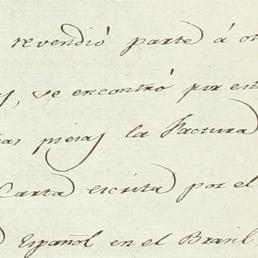 revendió parte á
se encontró por
piezas la Factura
Carta escrita por el
Español en el Brasil